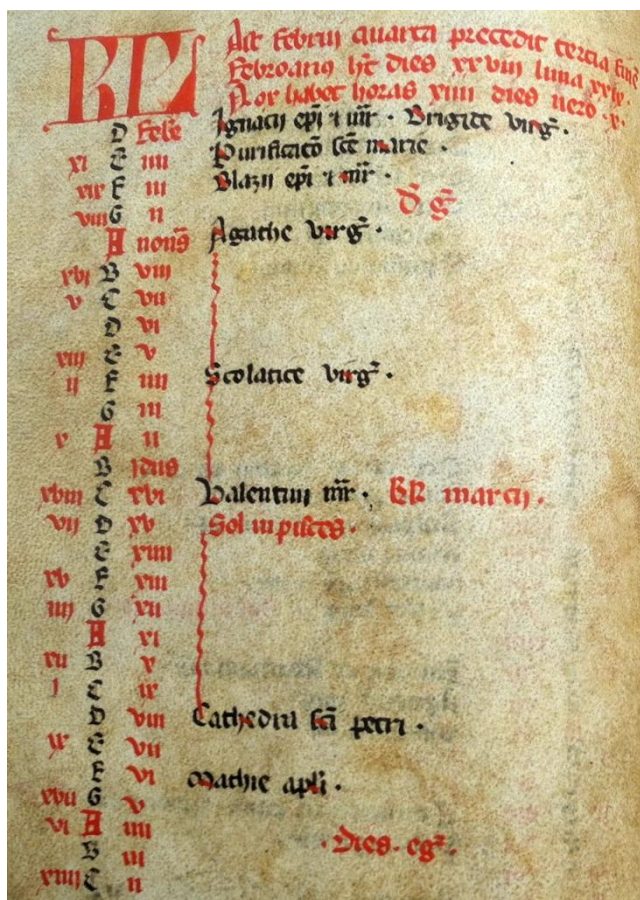 KL Ast februi quarta precedit tercia finē
Februarius hēt dies xxviii luna xxix.
Nox habet horas xiiii dies uero .x.
D Febr̄ Ignacii epī ⁊ mr̄ . Brigide virḡ .
xi E iiii Purificatō scē marie .
xix F iii Blazii epī ⁊ mr̄ .
viii G ii D̄ ḡ
A nonas Agathe virḡ .
xvi B viii
v C vii
D vi
xiii E v
ii F iiii Scolatice virḡ .
G iii
x A ii
B Idus
xviii C xvi Valentini mr̄ . KL marcii .
vii D xv Sol in pisces .
E xiiii
xv F xiii
iiii G xii
A xi
xii B x
i C ix
D viii Cathedra scī petri .
ix E vii
F vi Mathie aplī .
xvii G v
vi A iiii
B iii . Dies . eḡ .
xiiii C ii